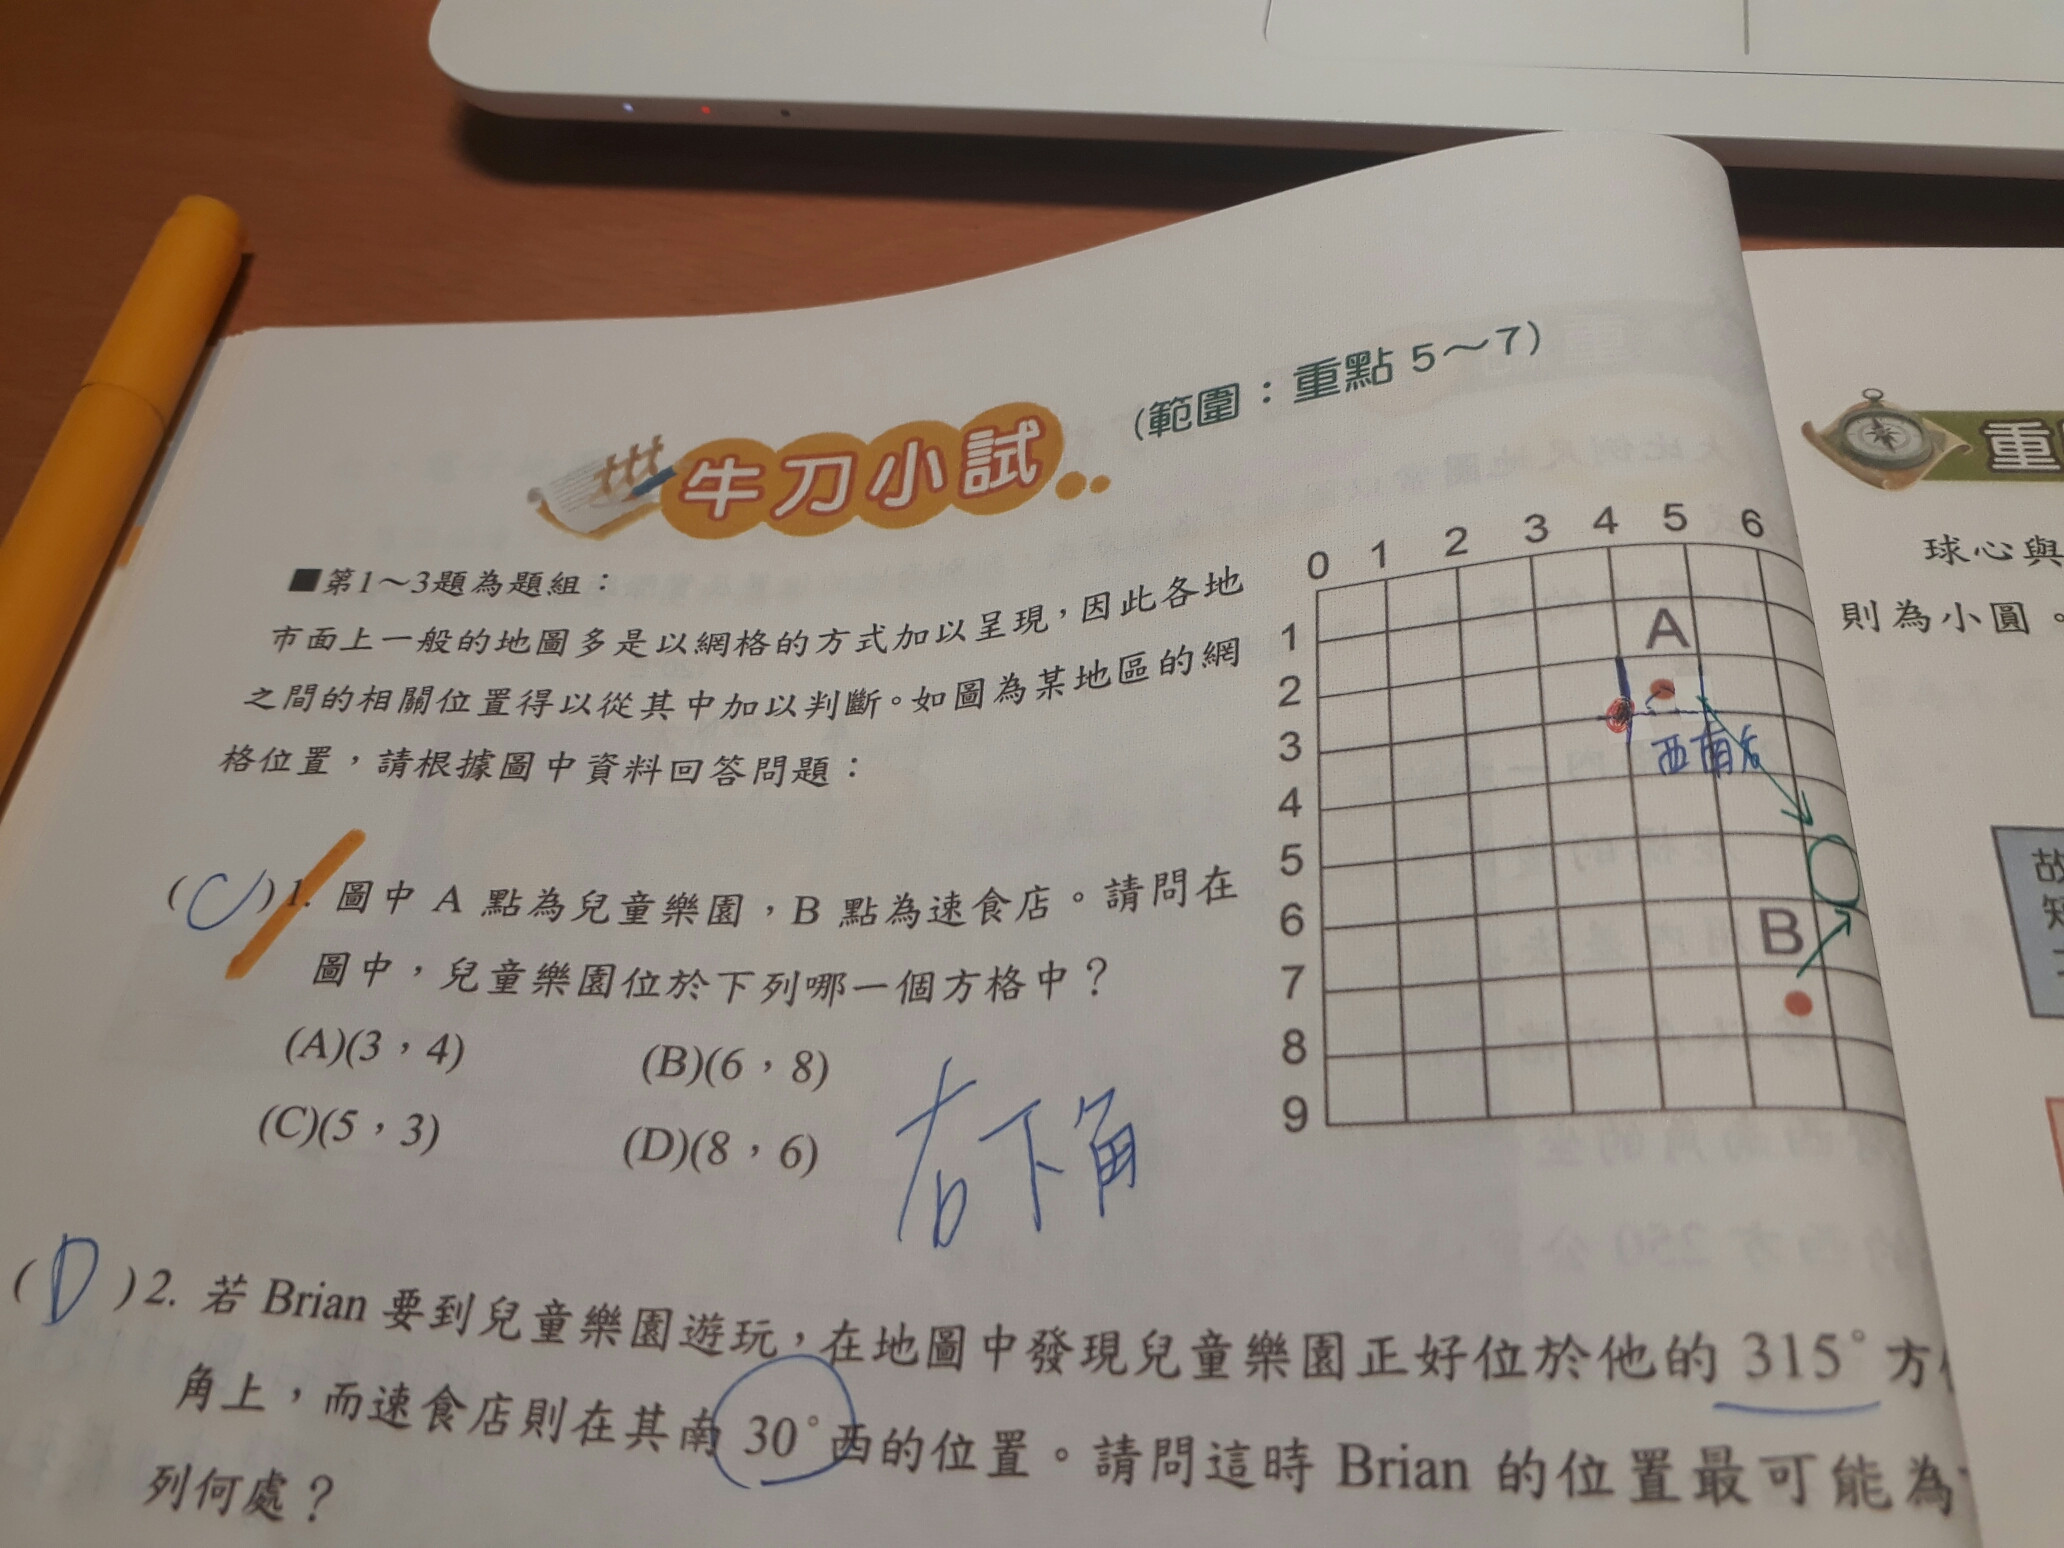 牛刀小試
(範圍：重點 5～7)
■第1～3題為題組：
市面上一般的地圖多是以網格的方式加以呈現，因此各地
之間的相關位置得以從其中加以判斷。如圖為某地區的網
格位置，請根據圖中資料回答問題：
(C)1. 圖中 A 點為兒童樂園，B 點為速食店。請問在
圖中，兒童樂園位於下列哪一個方格中？
(A)(3，4) (B)(6，8)
(C)(5，3) (D)(8，6)
右下角
0 1 2 3 4 5 6
1
2
3
4
5
6
7
8
9
A
西南方
B
(D)2. 若 Brian 要到兒童樂園遊玩，在地圖中發現兒童樂園正好位於他的 315° 方
角上，而速食店則在其南 30° 西的位置。請問這時 Brian 的位置最可能為
列何處？
球心與
則為小圓。